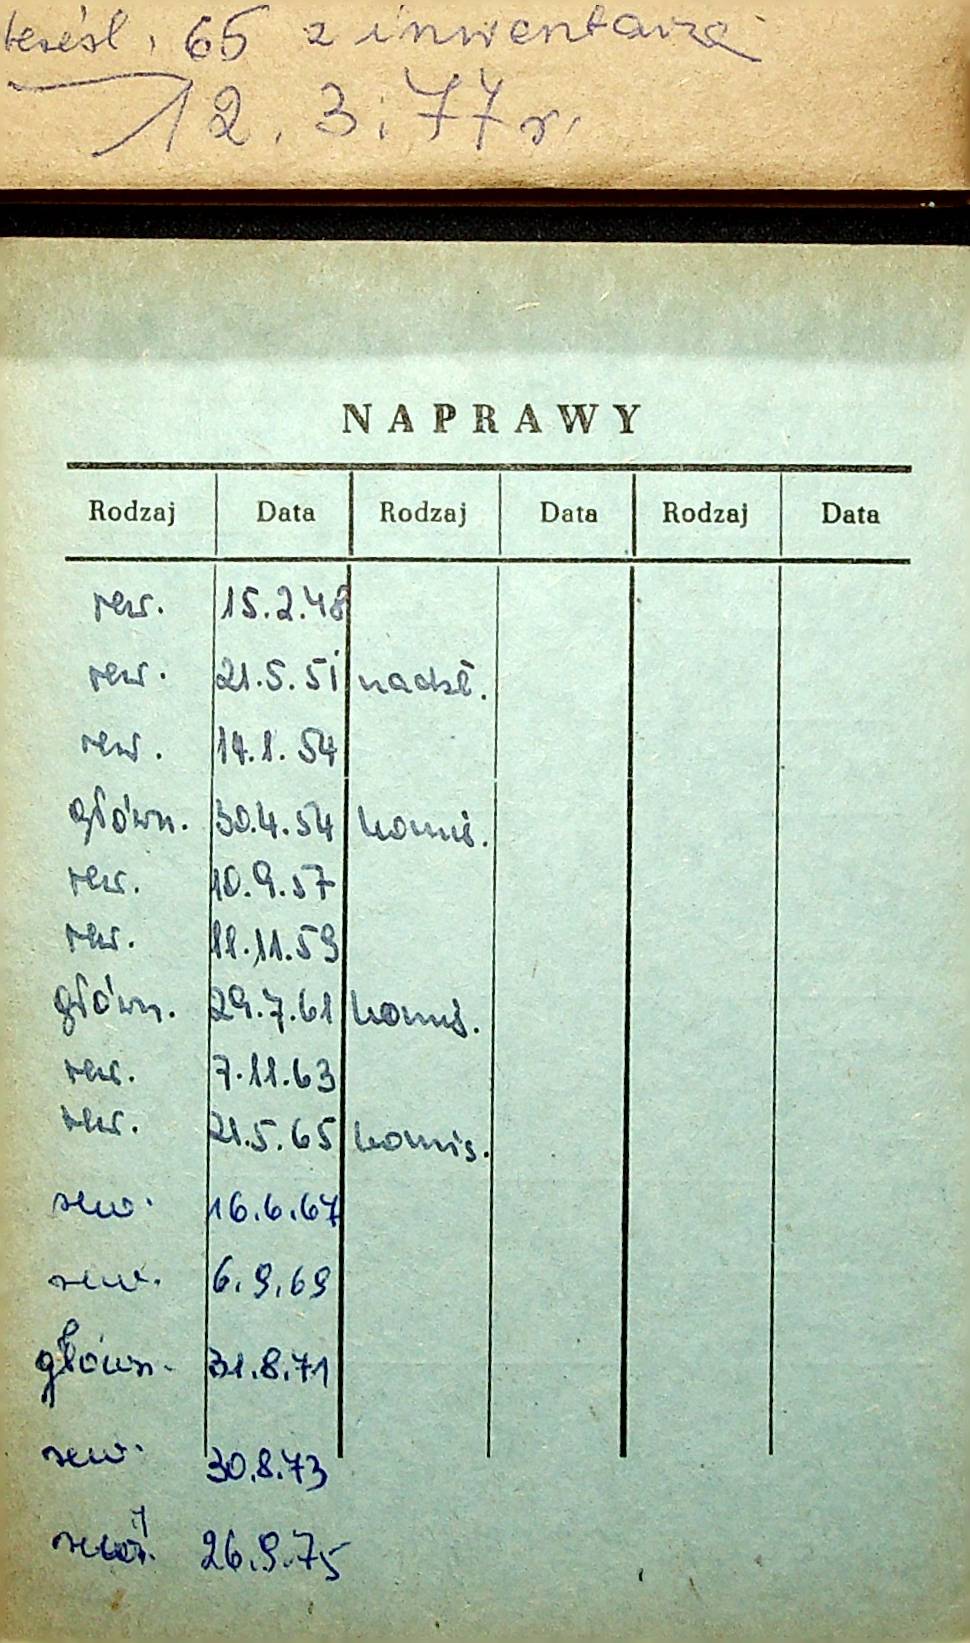 skreśl. 65 z inwentarza
12.3.77 r.
NAPRAWY
Rodzaj Data Rodzaj Data Rodzaj Data
rew. 15.2.48
rew. 21.5.51 nadzł.
rew. 14.1.54
główn. 30.4.54 komis.
rew. 10.9.57
rew. 11.11.59
główn. 29.7.61 komis.
rew. 7.11.63
rew. 21.5.65 komis.
rew. 16.6.67
rew. 6.9.69
główn. 31.8.71
rew. 30.8.73
26.9.75